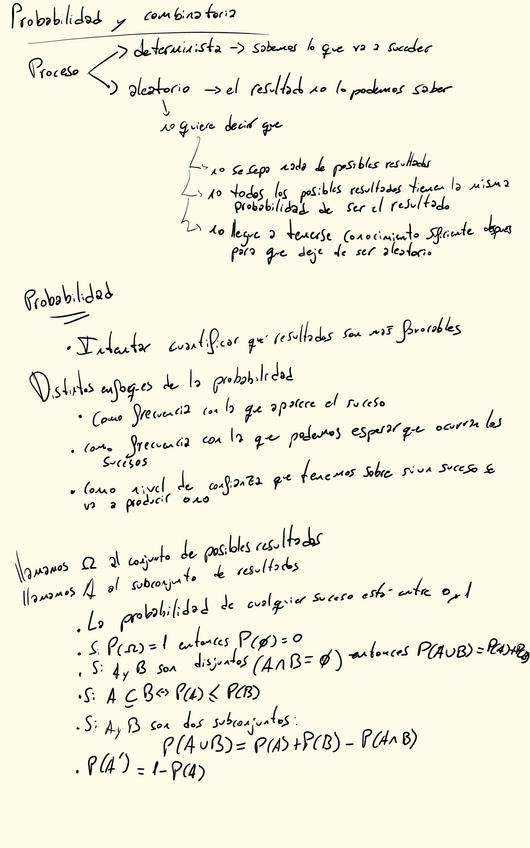 Probabilidad y combinatoria
Proceso
determinista -> sabemos lo que va a suceder
aleatorio -> el resultado no lo podemos saber
no quiere decir que
no se sepa nada de posibles resultados
no todos los posibles resultados tienen la misma
probabilidad de ser el resultado
no llegue a tenerse conocimiento suficiente despues
para que deje de ser aleatorio
Probabilidad
• Intentar cuantificar que resultados son más favorables
Distintos enfoques de la probabilidad
• Como frecuencia con la que aparece el suceso
• como frecuencia con la que podemos esperar que ocurran los
sucesos
• como nivel de confianza que tenemos sobre si un suceso se
va a producir o no
llamamos Ω al conjunto de posibles resultados
llamamos A al subconjunto de resultados
• La probabilidad de cualquier suceso está entre 0 y 1
• Si P(Ω)=1 entonces P(ø)=0
• Si A y B son disjuntos (A∩B=ø) entonces P(A∪B)=P(A)+P(B)
• Si A ⊆ B <=> P(A) ≤ P(B)
• Si A y B son dos subconjuntos:
P(A∪B) = P(A)+P(B) - P(A∩B)
• P(A') = 1-P(A)